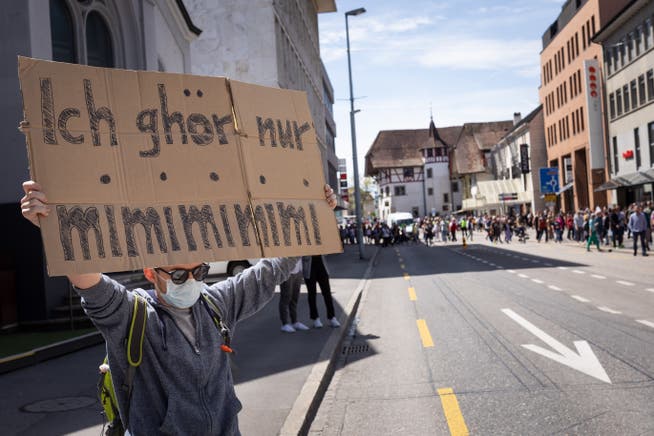 Ich ghör nur
mimimimimi